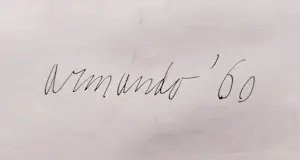 armando '60